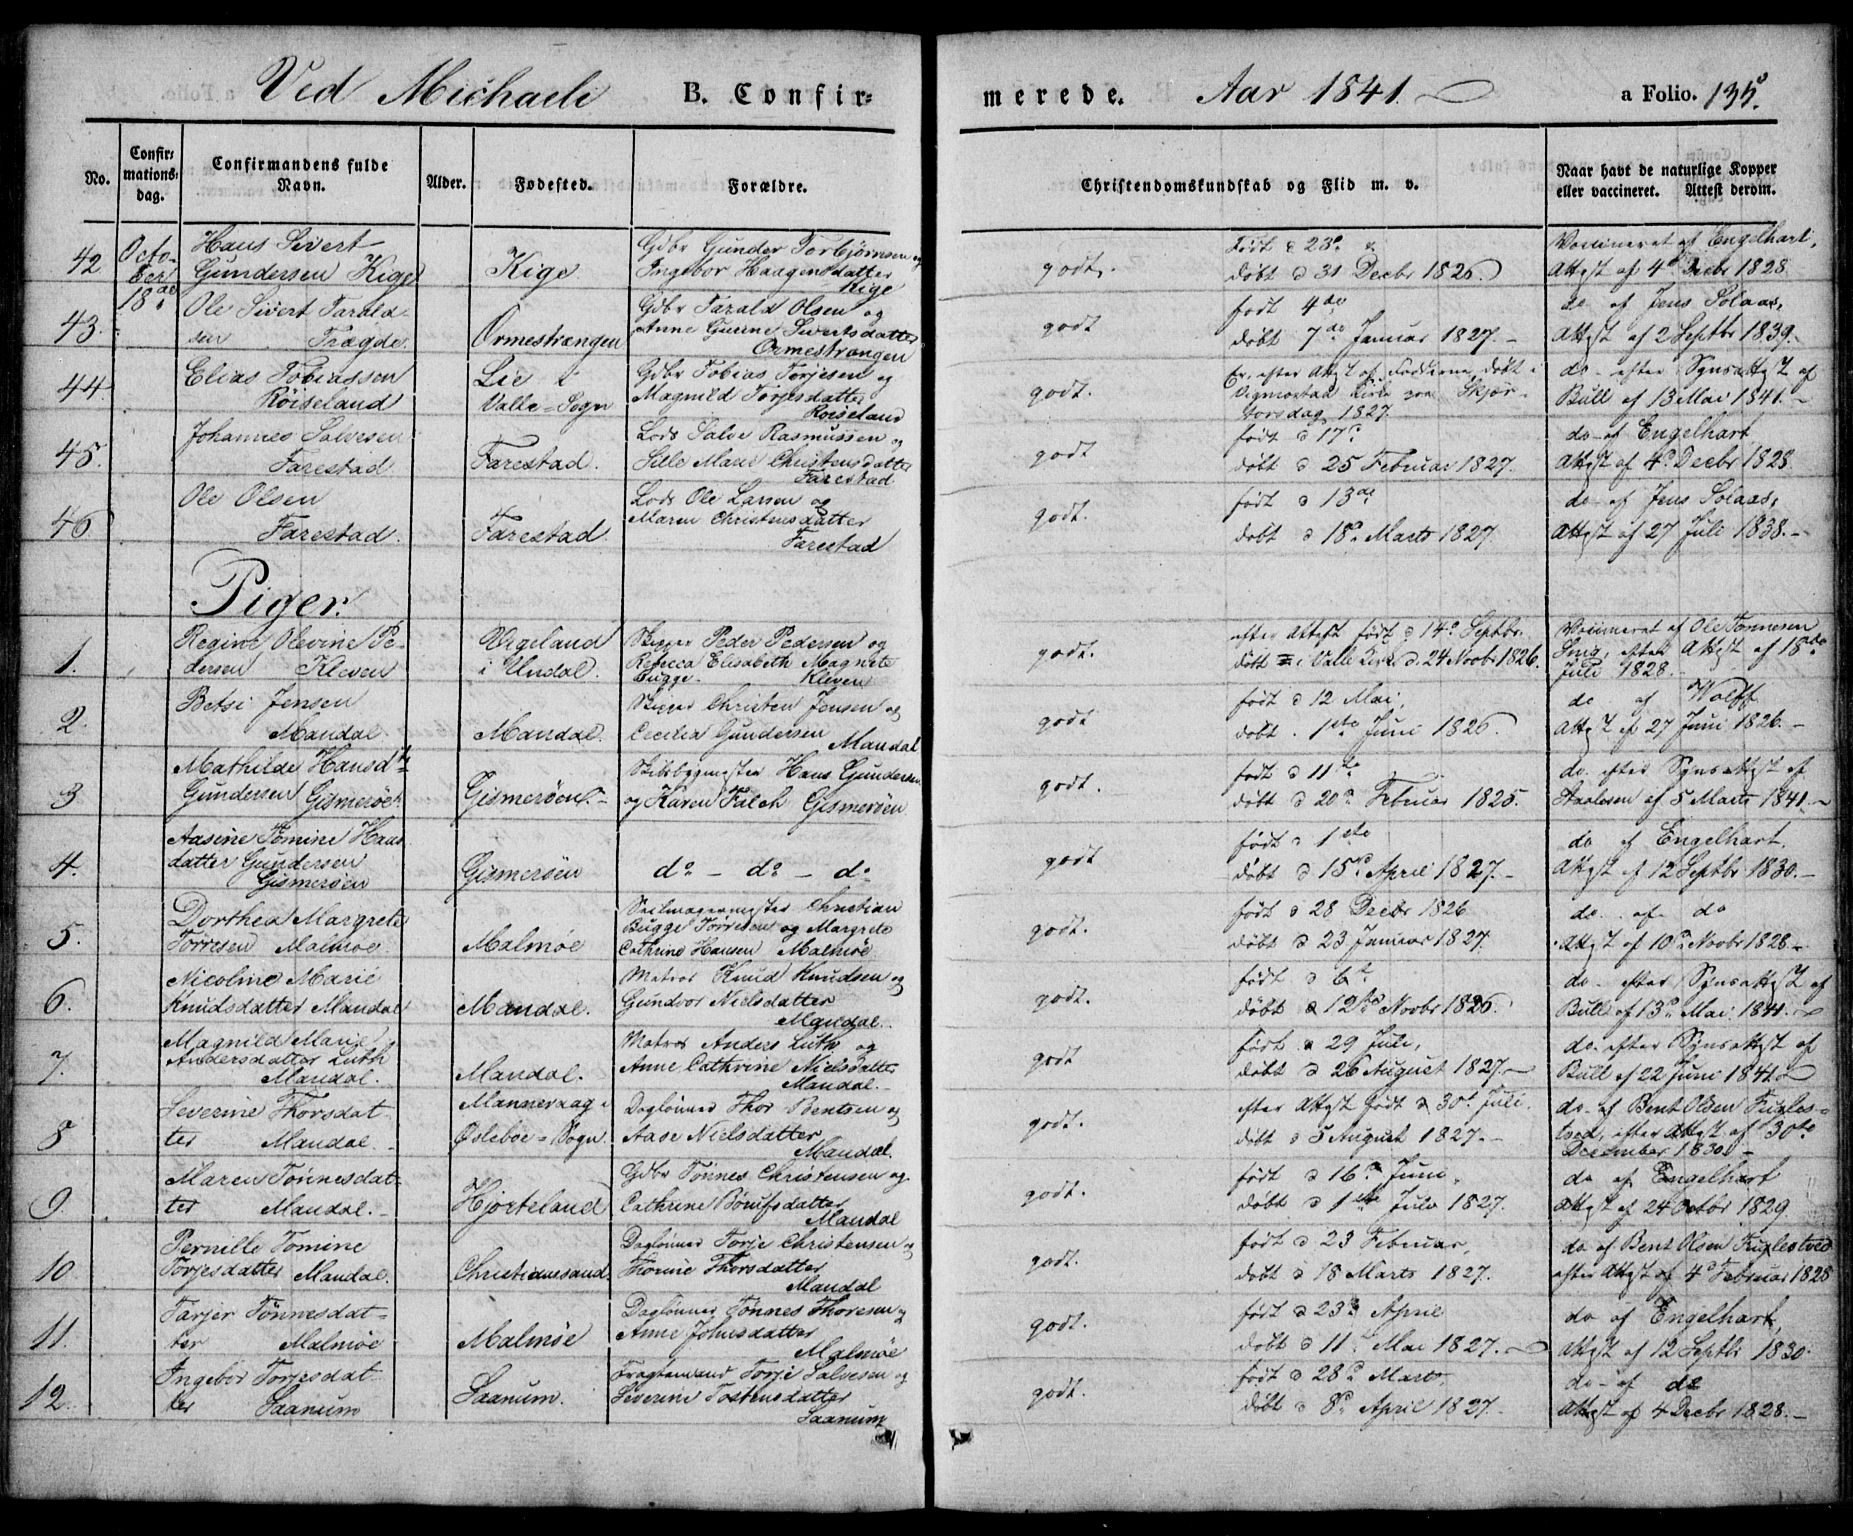 Ved Michaeli B. Confir= merede. Aar 1841. a Folio. 135.
No. Confir= mations= dag. Confirmandens fulde Navn. Alder. Fødested. Forældre. Christendomskundskab og Flid m. v. Naar havt de naturlige Kopper eller vaccineret. Attest derom.
42 Octo- Hans Sivert Gdbr Gunder Torbjørnsen og født d 23de
ber Gundersen Kige Kige Ingebor Haagensdatter godt. døbt d 31 Decbr 1826. Vaccineret af Engelhart,
18de Kige Attest af 4de Decbr 1828.
43. Ole Sivert Tarald- Gdbr Tarald Olsen og født 4de do af Jens Solaas,
sen Trægde. Ormestrangen Anne Gurine Sivertsdatter godt døbt 7de Januar 1827. Attest af 2 Septbr 1839.
Ormestrangen
44. Elias Tobiassen Lie i Gdbr Tobias Torjesen og Er efter Attest af Fødderne døbt i do. efter Synsattest af
Røiseland Valle=Sogn Magnild Torjesdatter godt. Kirke Skjær= Bull af 13 Mai 1841.
Røiseland torsdag 1827.
45. Johannes Salvesen Lods Salve Rasmussen og født d 17de do af Engelhart
Farestad Farestad. Sille Marie Christensdatter godt døbt d 25 Februar 1827. Attest af 4de Decbr 1828.
Farestad
46 Ole Olsen Lods Ole Larsen og født d 13de do af Jens Solaas,
Farestad. Farestad. Maren Christensdatter godt. døbt d 18de Marts 1827. Attest af 27 Juli 1838.
Farestad
Piger.
1. Regine Olevine Pe- Vigeland Skipper Peder Pedersen og efter Attest født d 14de Septbr. Vaccineret af Ole Tønnesen
dersen Kleven i Undal. Rebecca Elisabeth Magnete godt. døbt i Valle Kirke d. 24 Novbr 1826. efter Attest af 18de
Bugge. Kleven Juli 1828.
2. Betsi Jensen Skipper Christen Jensen og født d 12 Mai, do af Wolff
Mandal. Mandal. Cecilia Gundersen godt døbt 1ste Juni 1826. Attest af 27 Juni 1826.
Mandal
3 Mathilde Hansdtr Skibsbygmester Hans Gundersen født d 11te do. efter Synsattest af
Gundersen Gismerøen Gismerøen. og Karen Falch Gismerøen godt. døbt d 20de Februar 1825. Staalesen af 5 Marts 1841.
4. Aasine Tomine Hans født d 1ste do af Engelhart.
datter Gundersen Gismerøen do - do - do godt døbt d 15de April 1827. Attest af 12 Septbr 1830.
Gismerøen
5. Dorthea Margrete Seilmagermester Christian født d 28 Decbr 1826 do. af do
Tørresen Malmøe. Malmøe Bugge Tørresen og Margrete godt. døbt d 23 Januar 1827. Attest af 10de Novbr 1828.
Cathrine Hansen Malmøe
6. Nicoline Marie Matros Knud Knudsen og født d 6te do. efter Synsattest af
Knudsdatter Mandal Mandal. Gundvor Nielsdatter godt. døbt d 12te Novbr 1826. Bull af 13de Mai 1841.
Mandal.
7. Magnild Marie Matros Anders Luth og født d 29 Juli, do. efter Synsattest af
Andersdatter Luth Mandal. Anne Cathrine Nielsdatter godt døbt d 26 August 1827. Bull af 22 Juni 1841.
Mandal. Mandal.
8 Severine Thorsdat- Manneraag i Daglønner Thor Bentsen og efter Attest født d 30te Juli. do. af Bent Olsen Fuglest-
ter Mandal. Øslebøe=Sogn. Aase Nielsdatter godt. døbt d 5 August 1827. tved, efter Attest af 30te
Mandal. December 1830.
9. Maren Tønnesdat- Gdbr Tønnes Christensen og født d 16de Juni. do af Engelhart
ter Mandal. Hjorteland Cathrine Børufsdatter godt. døbt d 1ste Juli 1827. Attest af 24 Octbr 1829.
Mandal
10. Pernille Tomine Daglønner Torje Christensen og født d 23 Februar, do af Bent Olsen Fuglestved
Torjesdatter Mandal. Christianssand. Thorine Thorsdatter godt. døbt d 18 Marts 1827. efter Attest af 4de Februar 1828
Mandal
11. Tarjer Tønnesdat- Daglønner Tønnes Thoresen og født d 23de April do af Engelhart,
ter Malmøe Malmøe Anne Johnsdatter godt. døbt d 11te Mai 1827. Attest af 12 Septbr 1830.
Malmøe
12. Ingebor Torjesdat- Fragtemand Torje Salvesen og født d 28de Marts, do - af do
ter Saanum Saanum. Severine Tostensdatter godt. døbt d 8de April 1827. Attest af 4 Decbr 1828.
Saanum